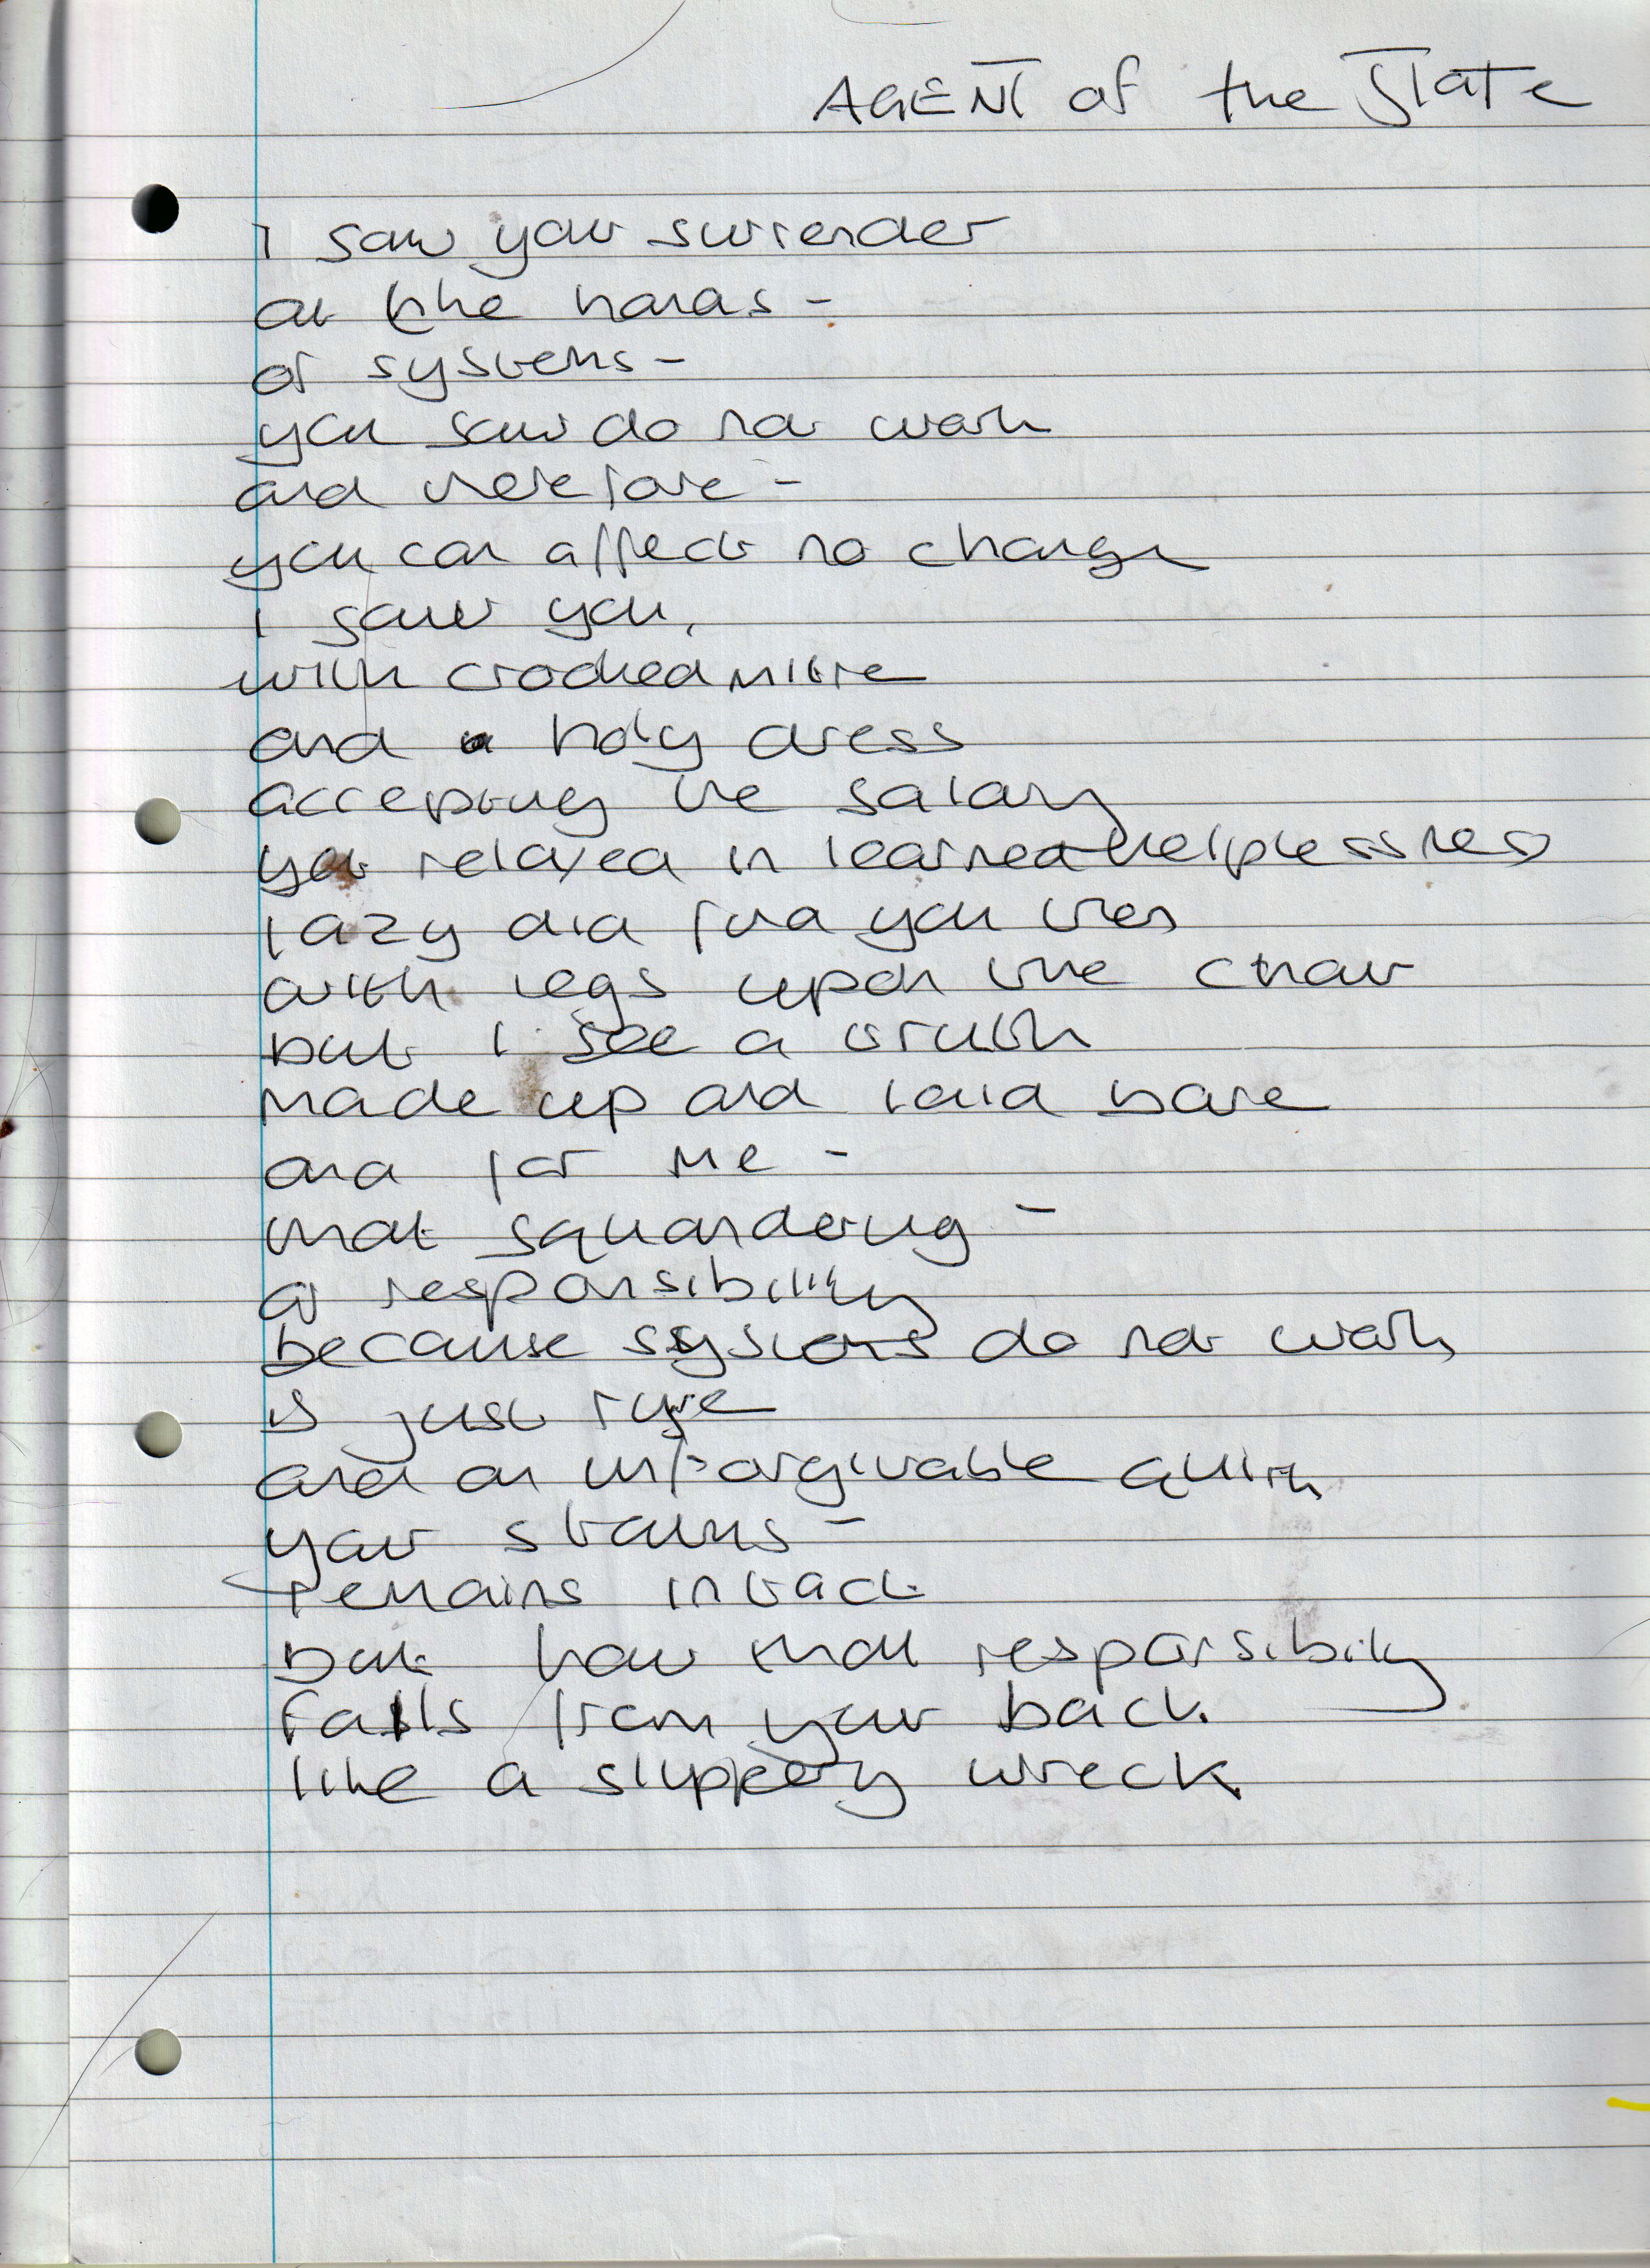 AGENT of the State
I saw your surrender
at the hands -
of systems -
you saw do not work
and therefore -
you can affect no change
I saw you,
with crooked mitre
and a holy dress
accepting the salary
you relaxed in learned helplessness
lazy did find you then
with legs upon the chair
but I see a truth
made up and laid bare
and for me -
that squandering -
of responsibility
because systems do not work
is just
and an unforgivable quirk
your -
remains intact
but how that responsibility
falls from your back
like a slippery wreck